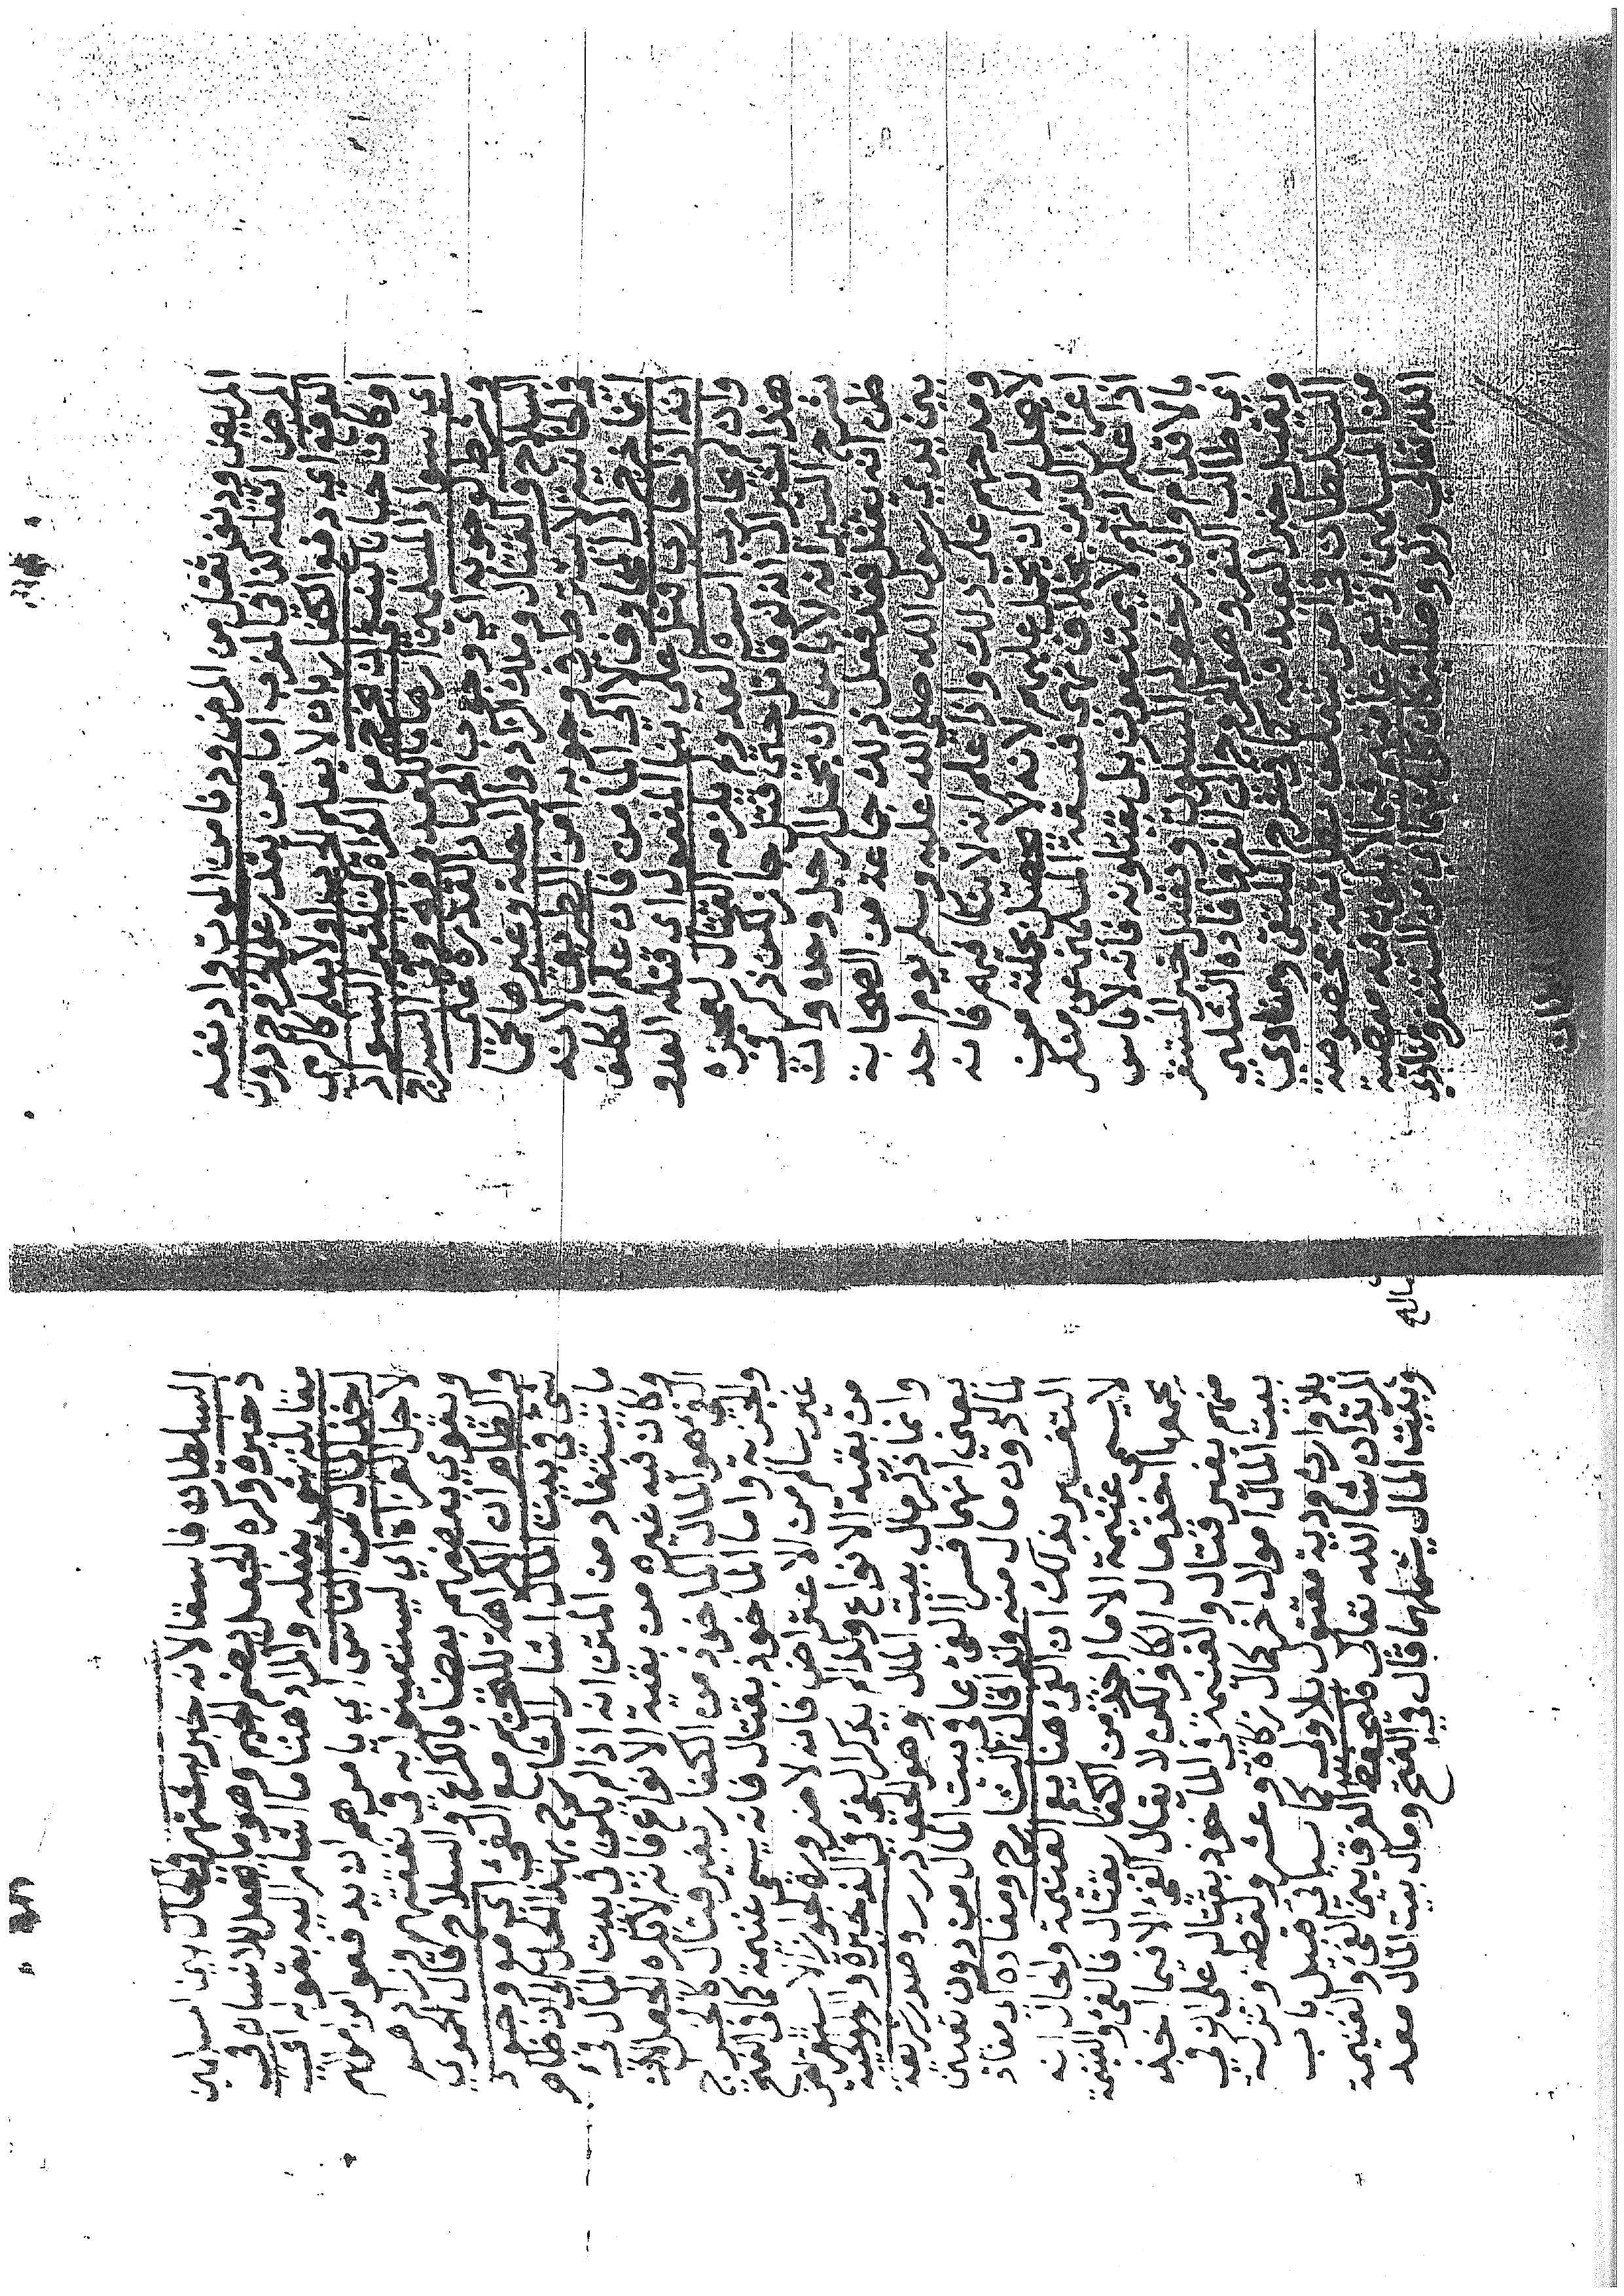 المريض ودنف ثقل من المرض ودنا من الموت وادنفه
المرض اثقله كذا في المغرب اما من يقدر على الخروج دون
الدفع اي دفع الكفار بان لا يعلم
وكان جبانا ينبغي ان يخرج مع الغزاة لتكثير السواد
اي سواد المسلمين ارهابا للعدو وفي السراج
وشرط لوجوبه اي وجوب الجهاد القدرة على
السلاح والقتال وملك الزاد والراحلة وغير ما في
الخانية لا يشترط في وجوبه امن الطريق لانه
خرج الى فان علم المكلف
انه اذا حارب قتل على بناء المفعول اي قتله العدو
وان لم يحارب اسره العدو لم يلزمه القتال لعجزه
هذا يشير الى انه لو قاتل حتى قتل جاز لكن ذكر في
شرح السير انه لا باس ان يحمل الرجل وحده وان
ظن انه يقتل فقد فعل ذلك جماعة من الصحابة
بين يدي رسول الله صلى الله عليه وسلم يوم احد
ومدحهم على ذلك واذا علم انه لا ينكا فيهم فانه
لا يحل له ان يحمل عليهم لانه لا يحصل بحملته من
اعزاز الدين بخلاف نهي فسقة المسلمين عن منكر
اذا علم انهم لا يمتنعون بل يقتلونه فانه لا باس
بالاقدام وان رخص له السكوت وتقبل خبر المستنفر
اي طالب النفر وهو الخروج الى الغزو افاده الشلبي
وتقبل خبر العبد فيه كما في شرح الملتقى ومنادي
السلطان في امر يتعلق بطائفة مخصوصة
من المسلمين او نفع عامتهم مما لا يكون فيه معصية
الله تعالى ولو وصلية كان كل منهما اي من المستنفر ومنادي
السلطان فاسقا لانه خبر يشتهر في الحال
وكره الجعل بضم الجيم وهو ما يجعل للانسان في
مقابلة شي يفعله والمراد هنا ما اشار اليه بقوله اي
اخذ المال من الناس اي بامرهم اذ
لاجل الغزاة اي ليستعينوا به في نفقتهم وزادهم
ويقوي بعضهم بعضا بالكراع والسلاح قال الحموي
والظاهر ان الكراهة للتحريم مع الفيء اي مع وجود
شي في بيت المال اشار الشارح بهذا الحل الى ظاهر
ما يستفاد من المتن انه اذا لم يكن في بيت المال فيء
وكان فيه غيره من بقية الانواع فانه لا يكره الجعل
الفيء هو المال الماخوذ من الكفار بغير قتال كالخراج
والجزية واما الماخوذ بقتال فانه يسمى غنيمة كما في الفتح
غير سالم من الاعتراض فانه لا ضرورة لجواز الاستقراض
من بقية الانواع ولذا لم يذكر الفيء في الذخيرة والولوالجية
وانما ذكر مال بيت المال وهو الحق درر وصدر الشريعة
يعني انهما فسرا الفيء بما في بيت المال من دون تعيين
لماخوذ دون مال منه ولذا قال الشارح ومفاده اي مفاد
التفسير بذلك ان الفيء هنا يعم الغنيمة والحال انه
لا يسمى غنيمة الا ما اخذ من الكفار بقتال فالفيء والغنيمة
يجمعهما اخذ مال الكافر لكن لا يقال الفيء الا فيما اخذ
منهم بغير قتال والغنيمة في الماخوذ بقتال على ان في
بيت المال اموال اخر كمال زكاة وعشر ولقطة وتركة
بلا وارث ودية مقتول بلا ولي كما سياتي قبيل باب
المرتد ان شاء الله تعالى فليحفظ الفرق بين الفيء والغنيمة
وبيت المال يشملهما قال في الفتح ومال بيت المال معد